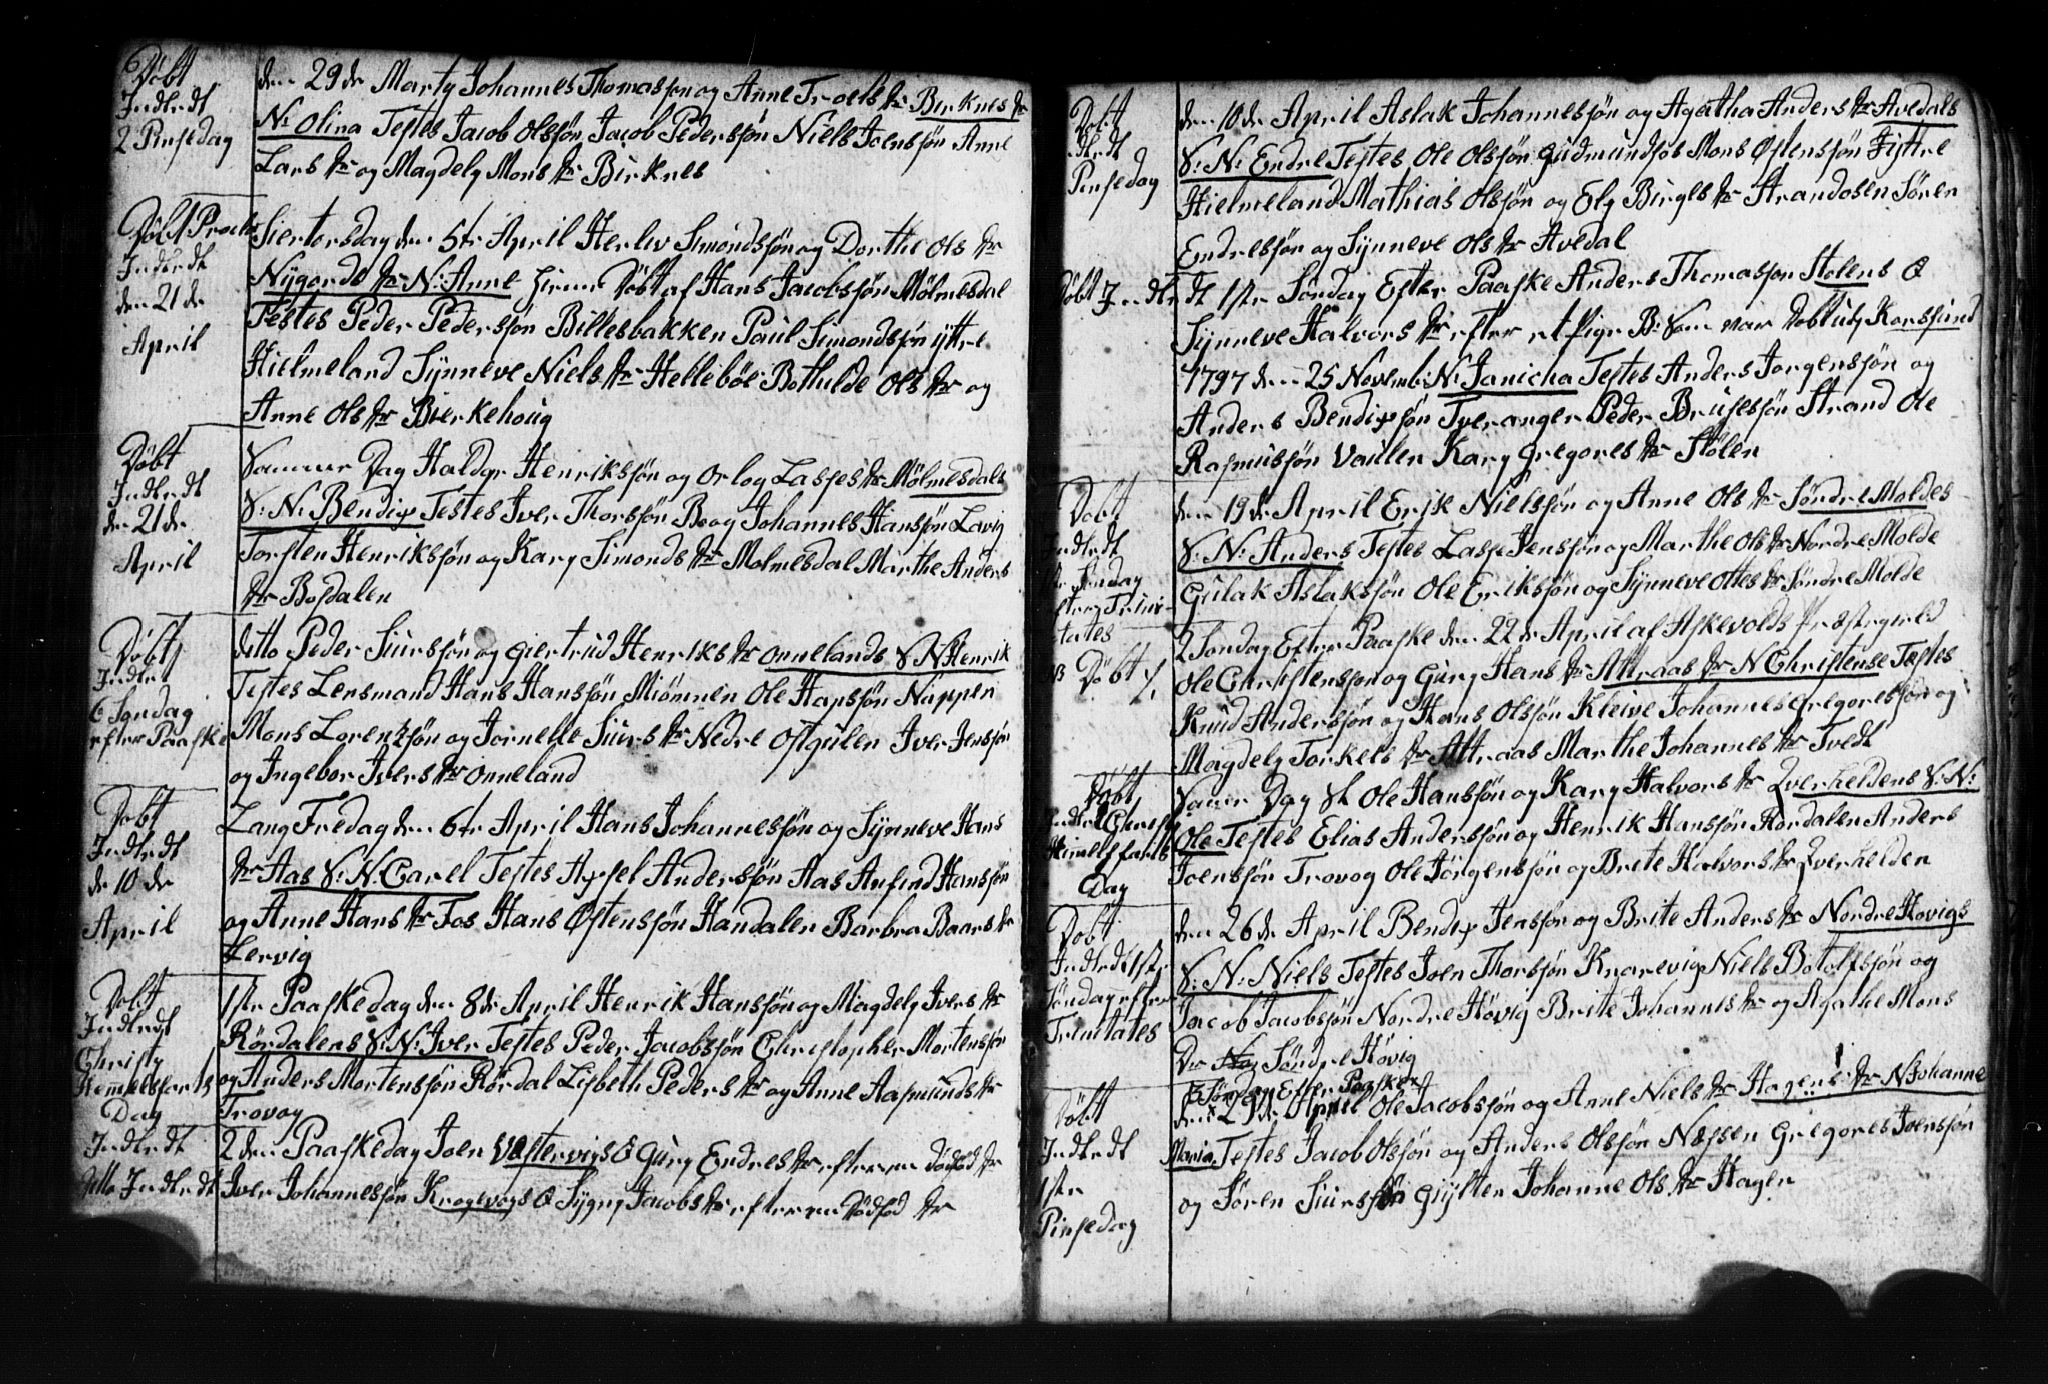 6
Döbt
Indledt
2 Pinsedag
den 29de Marty Johannes Thomassen og Anne Troels dr Birknes dr
N: Olina Testes Jacob Olssøn Jacob Pederssøn Niels Joenssøn Anne
Lars dr og Magdely Mons dr Birknes
Döbt
Indledt
den 21de
April
Skiertorsdag den 5te April Herlev Simondssøn og Dorthe Ols dr
Nÿgords dr N: Anne hiemme Döbt af Hans Jacobssøn Mölmesdal
Testes Peder Pederssøn Billesbakken Paul Simondssøn ÿttre
Hielmeland Sÿnneve Niels dr Helleböe Bothilde Ols dr og
Anne Ols dr Birkehoug
Döbt
Indledt
den 21de
April
Samme Dag Haldor Henrikssøn og Orlog Lasses dr Mölmesdals
S: N: Bendix Testes Iver Thorssøn Boog Johannes Hanssøn Lavig
Torsten Henrikssøn og Kary Simonds dr Molmesdal Marthe Anders
dr Bosdalen
Döbt
Indledt
6 Søndag
efter Paaske
ditto Peder Siurssøn og Giertrud Henriks dr Onnelands S N Henrik
Testes Lensmand Hans Hanssøn Miömnen Ole Hanssøn Nappen
Mons Lorentzøn og Jornelle Siurs dr Nedre Ostgulen Iver Jenssøn
og Ingebor Ivers dr Onneland
Döbt
Indledt
de 10de
April
Lang Fredag den 6te April Hans Johannessøn og Sÿnneve Hans
dr Aas S: N: Carel Testes Axsel Anderssøn Aas Anfind Hanssøn
og Anne Hans dr Fos Hans Østenssøn Handalen Barbra Baars dr
Lervig
Döbt
Indledt
Christi
Hemmelsfarts
Dag
1ste Paaskedag den 8de April Henrik Hanssøn og Magdely Ivers dr
Rördalens S: N: Iver Testes Peder Jacobssøn Christopher Mortenssøn
og Anders Mortenssøn Rördal Lisbeth Peders dr og Anne Aasmunds dr
Trovog
Indledt
2den Paaskedag Joen Vestervigs Q Gury Endres dr efter en dödfød dr
ditto Indledt Iver Johannessøn Krogevogs Q Sygni Jacobs dr efter en Dödfød dr
Döbt
Indledt
Pinsedag
den 10de April Aslak Johannessøn og Agatha Anders dr Avedals
S: N: Endre Testes Ole Olssøn Gudmundsos Mons Østenssøn Jÿttre
Hielmeland Mathias Olssøn og Ely Birges dr Strandosen Søren
Endressøn og Sÿnneve Ols dr Avedal
Döbt Indledt 1ste Søndag Efter Paaske Anders Thomasson Stolens Q
Sÿnneve Halvors dr efter et Pige B: Som var Döbt udj Korssund
1797 den 25 Novemb: N: Janicha Testes Anders Jorgenssøn og
Anders Bendixsøn Tveranger Peder Brusessøn Strand Ole
Rasmussøn Vaulen Kary Gregores dr Stölen
Döbt
Indledt
Søndag
efter Trini-
tates
den 19de April Erik Nielssøn og Anne Ols dr Søndre Moldes
S: N: Anders Testes Lasse Jenssøn og Marthe Ols dr Nordre Molde
Gulak Aslakssøn Ole Erikssøn og Sÿnneve Ottes dr Søndre Molde
Döbt
2 Søndag Efter Paaske den 22de April af Askevolds Præstegield
Ole Christenssøn og Gury Hans dr Attraas dr N Christense Testes
Knud Anderssøn og Hans Olssøn Kleive Johannes Gregoressøn og
Magdely Torkels dr Attraas Marthe Johannes dr Tvedt
Döbt
Indtet Christi
Himmelsfarts
Dag
Samme Dag Sk Ole Hanssøn og Kary Halvors dr Qverheldens S: N:
Ole Testes Elias Anderssøn og Henrik Hanssøn Rördalen Anders
Joenssøn Trovog Ole Jörgenssøn og Brite Halvors dr Qverhelden
Döbt
Indledt 1ste
Søndag efter
Trinitates
den 26de April Bendix Jenssøn og Brite Anders dr Nordre Hovigs
S: N: Niels Testes Joen Thorssøn Knarevig Niels Botolfssøn og
Jacob Jacobssøn Nordre Hövig Brite Johannis dr og Agathe Mons
Dr Søndre Hövig
Döbt
Indledt
1ste
Pinsedag
3 Søndag Efter Paaske
den 29de April Ole Jacobssøn og Anne Niels dr Hagens dr N Johanne
Maria Testes Jacob Olssøn og Anders Olssøn Næssen Gregores Joenssøn
og Søren Siurssøn Gÿlten Johanne Ols dr Hagen